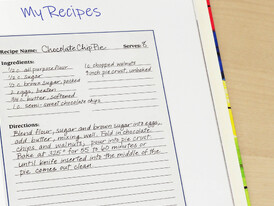 My Recipes
Recipe Name: Chocolate Chip Pie Serves: 8
Ingredients:
1/2 c all purpose flour 1 c chopped walnuts
1/2 c sugar 9 inch pie crust, unbaked
1/2 c brown sugar, packed
2 eggs, beaten
3/4 c butter, softened
1 c semi-sweet chocolate chips
Directions:
Blend flour, sugar and brown sugar into eggs,
add butter, mixing well. Fold in chocolate
chips and walnuts, pour into pie crust
Bake at 325° for 55 to 60 minutes or
until knife inserted into the middle of the
pie comes out clean.